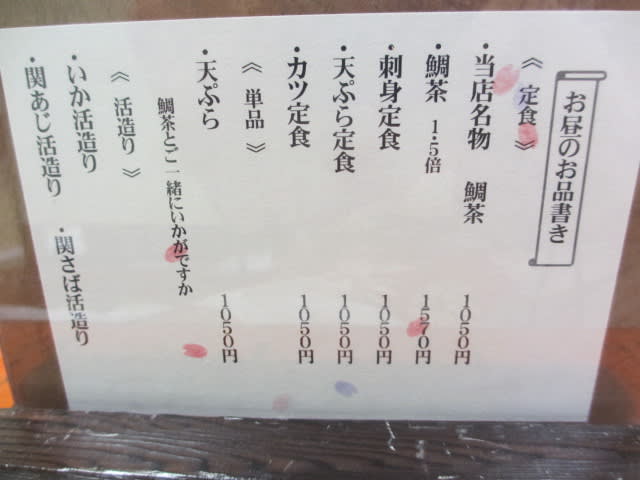 お昼のお品書き
《 定食 》
・当店名物 鯛茶 1050円
・鯛茶 1.5倍 1570円
・刺身定食 1050円
・天ぷら定食 1050円
・カツ定食 1050円
《 単品 》
・天ぷら 1050円
鯛茶とご一緒にいかがですか
《 活造り 》
・いか活造り ・関さば活造り
・関あじ活造り